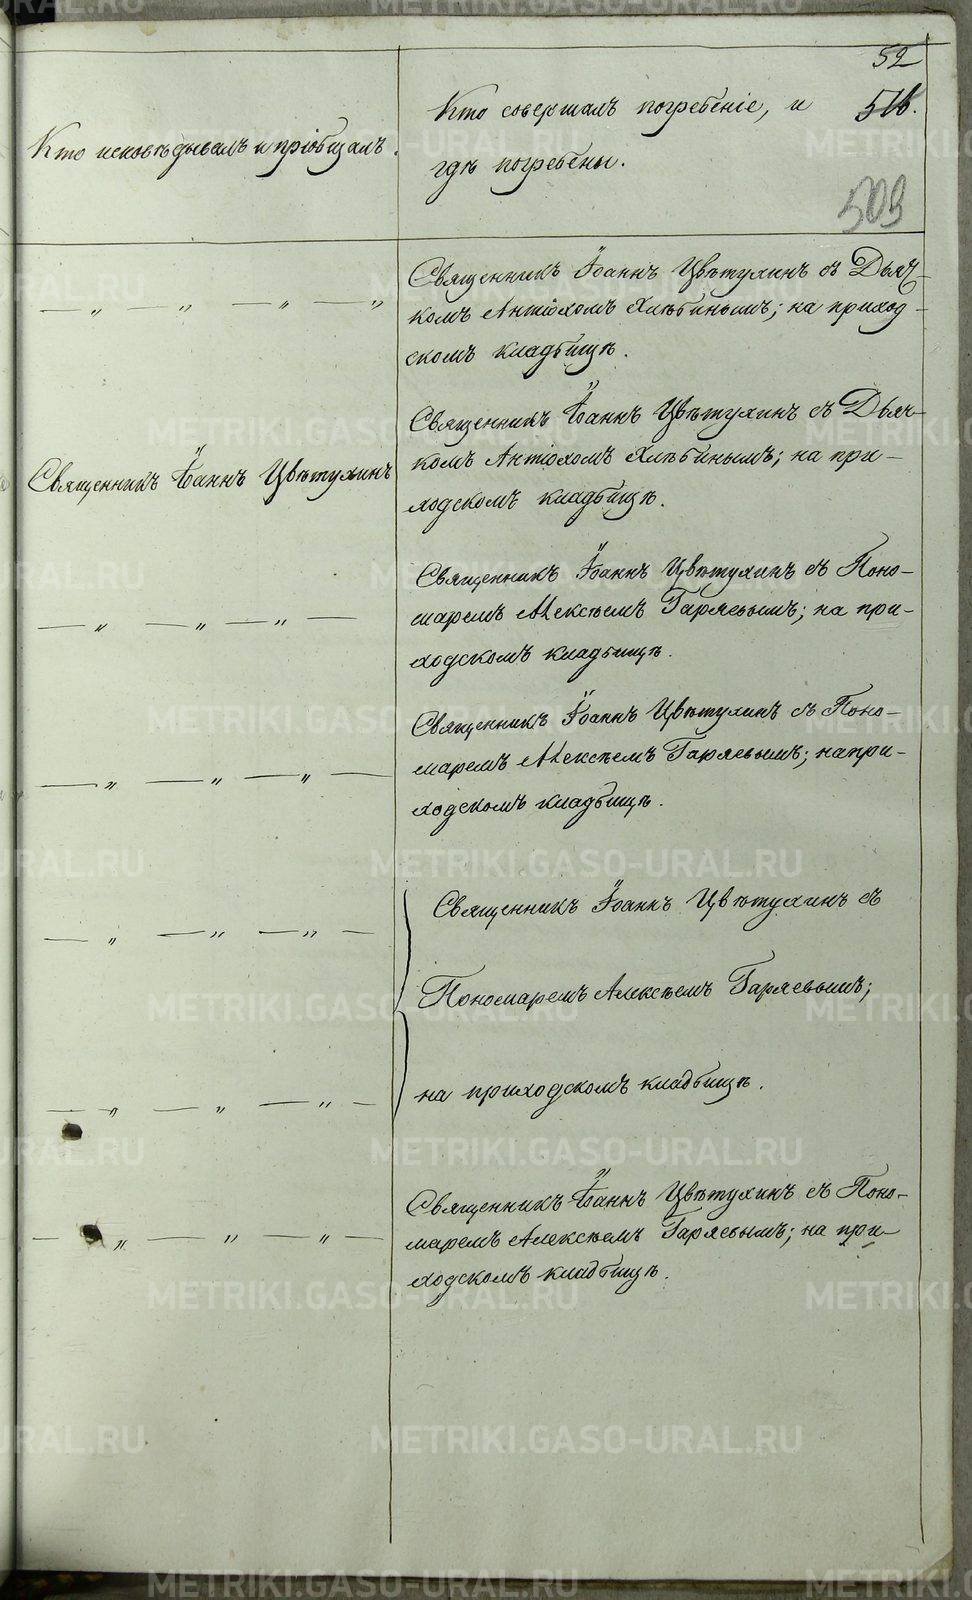 52
516.
509
Кто исповѣдывалъ и пріобщалъ.
Кто совершалъ погребеніе, и
гдѣ погребены.
— „ — „ — „ — „
Священникъ Іоаннъ Цвѣтухинъ съ Дьяч-
комъ Антіохомъ Хлѣбинымъ; на приход-
скомъ кладбищѣ.
Священникъ Іоаннъ Цвѣтухинъ
Священникъ Іоаннъ Цвѣтухинъ съ Дьяч-
комъ Антіохомъ Хлѣбинымъ; на при-
ходскомъ кладбищѣ.
— „ — „ — „ —
Священникъ Іоаннъ Цвѣтухинъ съ Поно-
маремъ Алексѣемъ Гаряевымъ; на при-
ходскомъ кладбищѣ.
— „ — „ — „ —
Священникъ Іоаннъ Цвѣтухинъ съ Поно-
маремъ Алексѣемъ Гаряевымъ; на при-
ходскомъ кладбищѣ.
— „ — „ — „ —
Священникъ Іоаннъ Цвѣтухинъ съ
Пономаремъ Алексѣемъ Гаряевымъ;
— „ — „ — „ —
на приходскомъ кладбищѣ.
— „ — „ — „ —
Священникъ Іоаннъ Цвѣтухинъ съ Поно-
маремъ Алексѣемъ Гаряевымъ; на при-
ходскомъ кладбищѣ.
METRIKI.GASO-URAL.RU